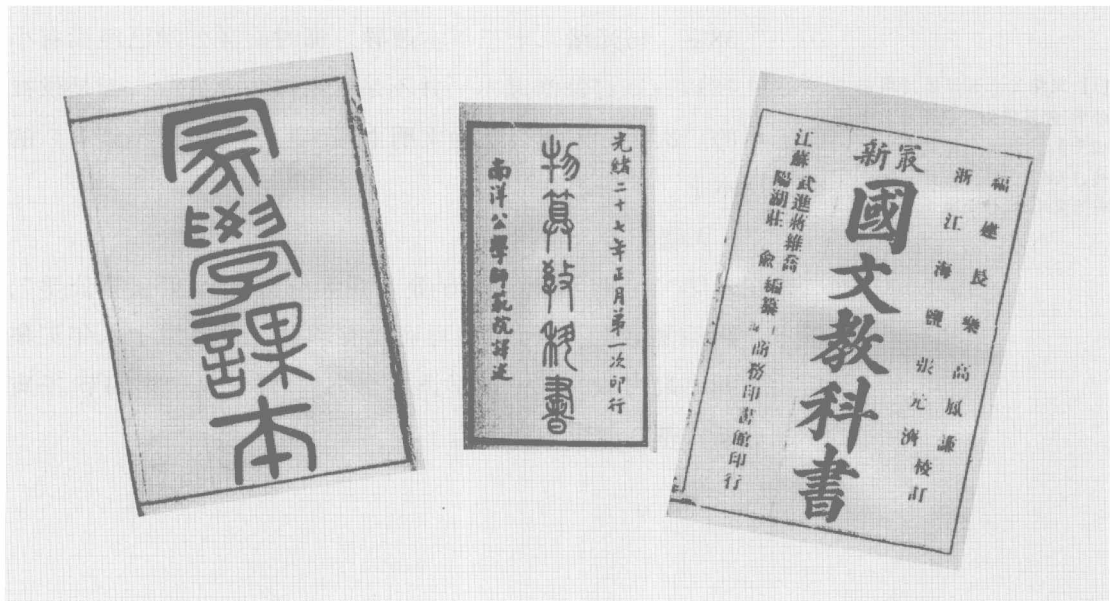 蒙學課本
光緒二十七年正月弟一次印行
物算教科書
南洋公學師範院譯述
福建長樂高鳳謙
浙江海鹽張元濟校訂
最新
國文教科書
江蘇武進蔣維喬
陽湖莊俞編纂
商務印書館印行